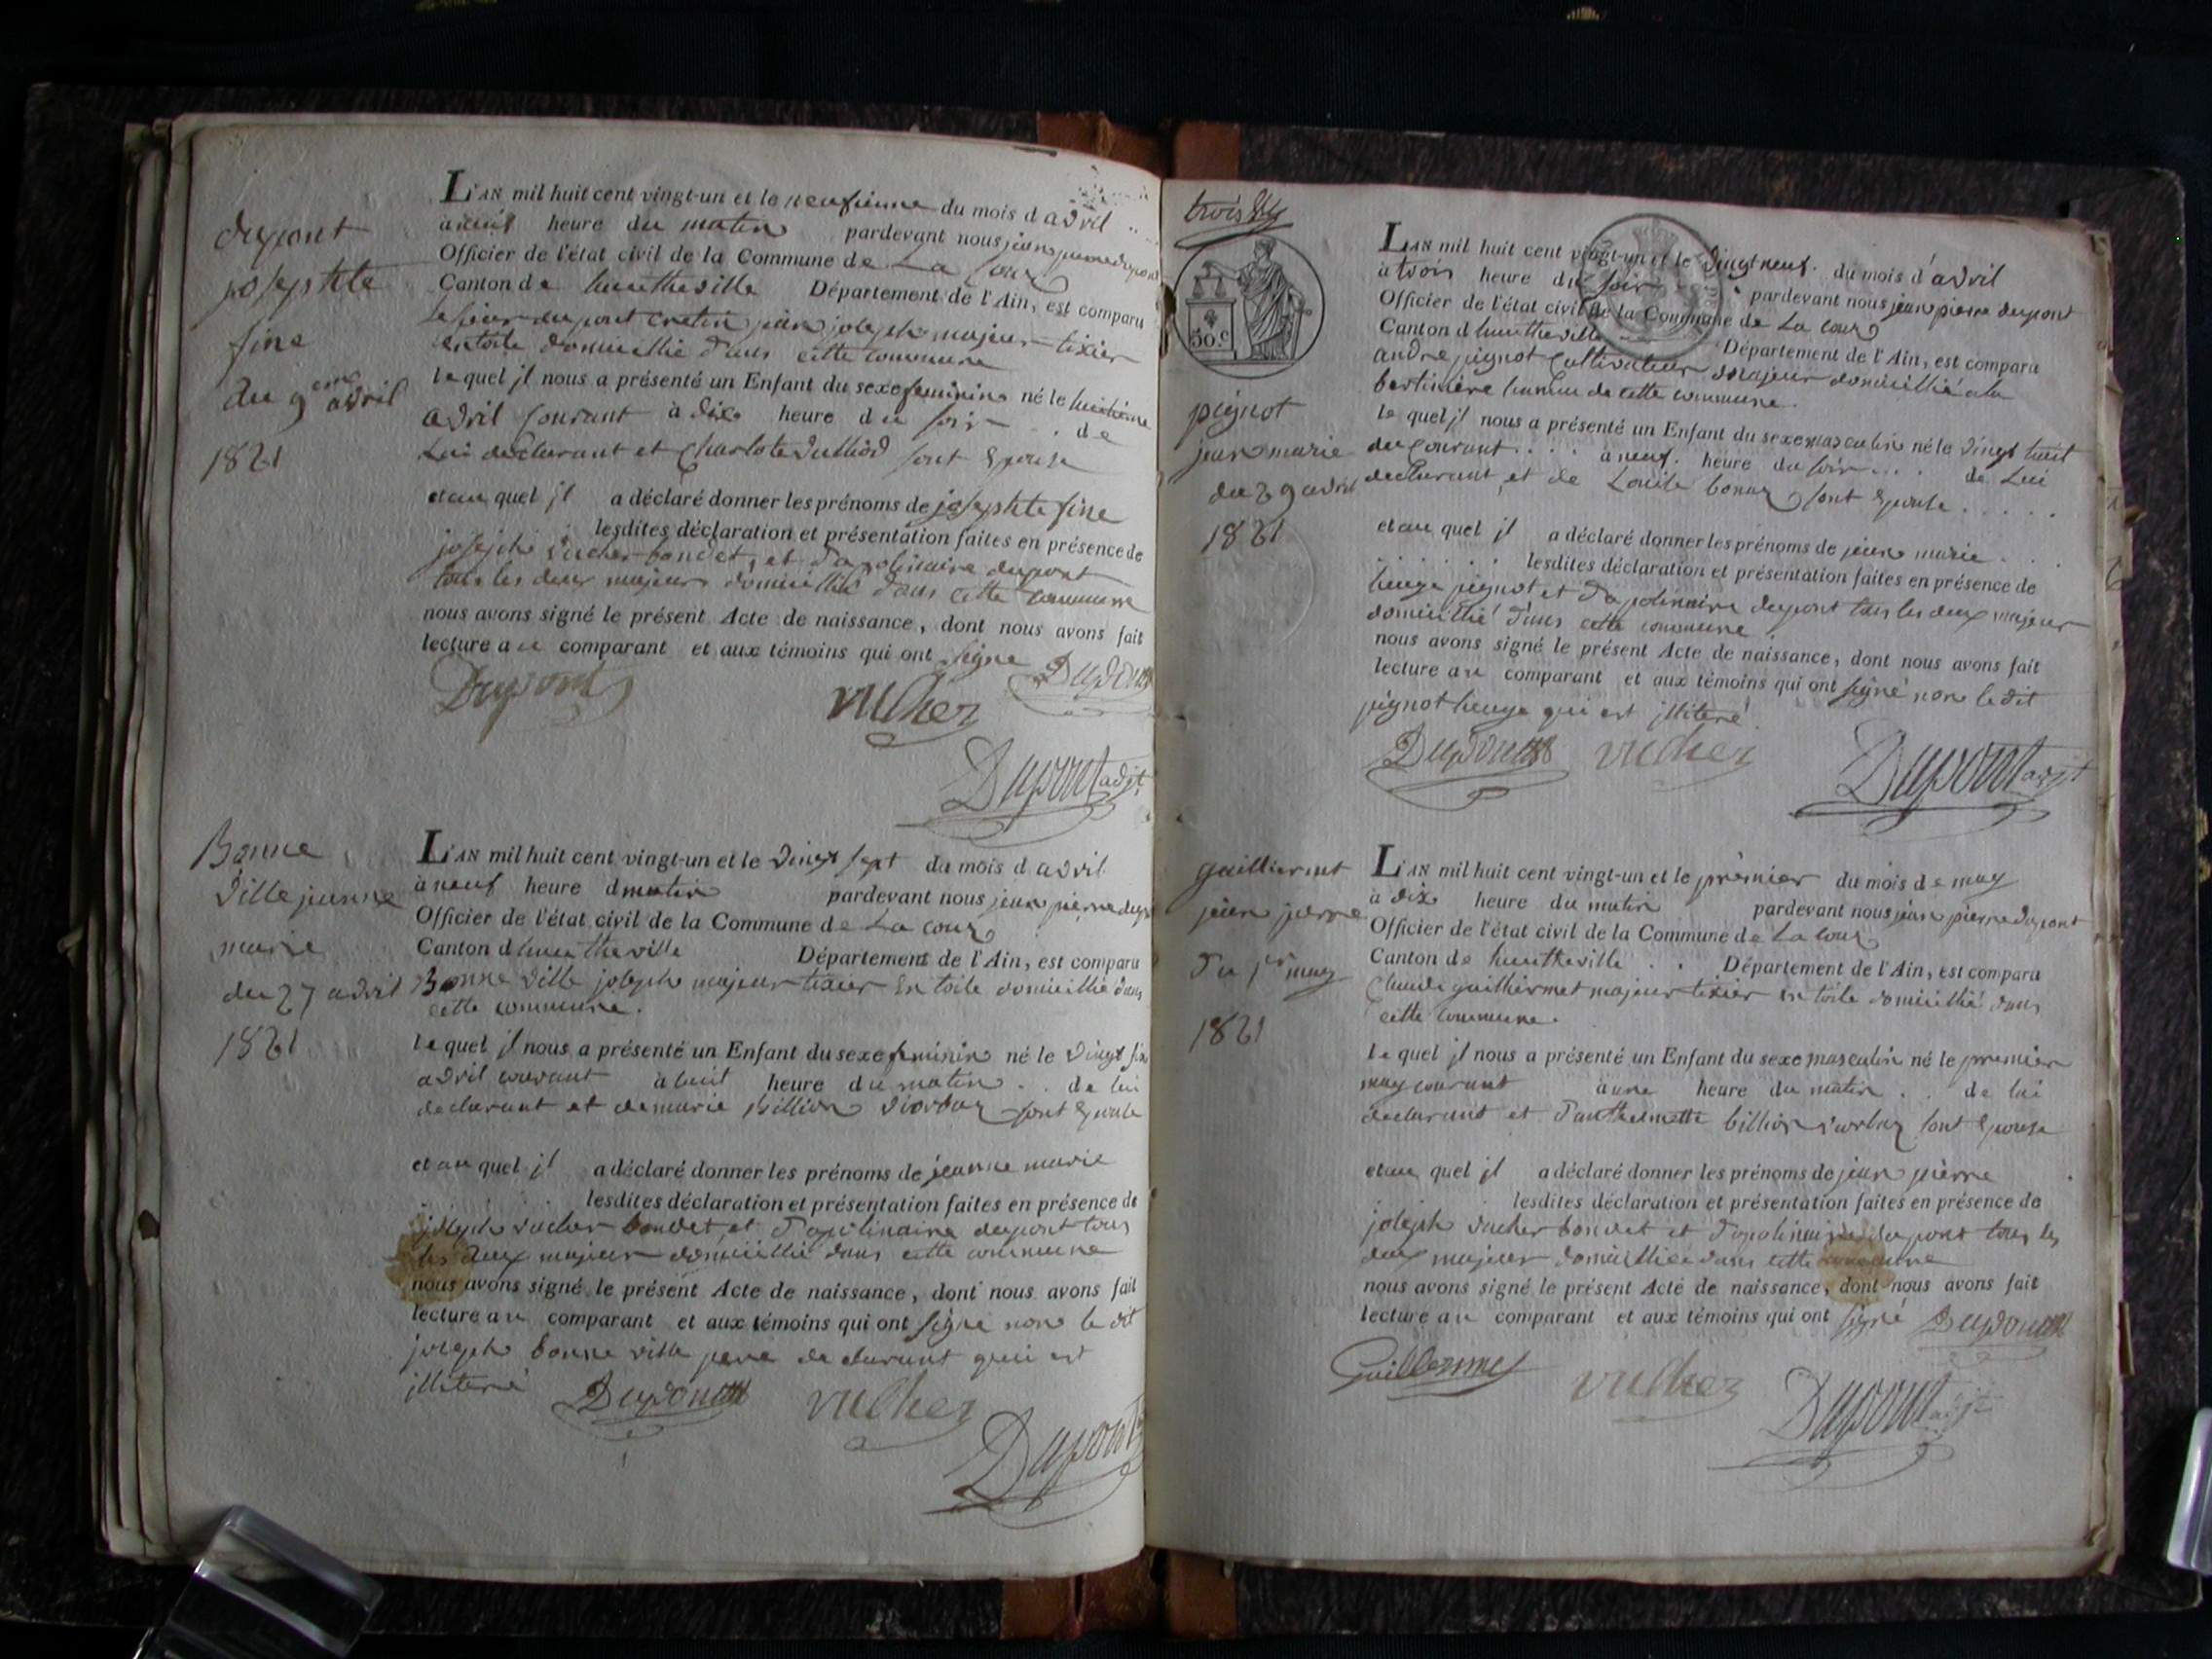 dupont
josephte
fine
du 9eme avril
1821
L'AN mil huit cent vingt-un et le neufienne du mois d avril
à neuf heure du matin pardevant nous jean pierre dupont
Officier de l'état civil de la Commune de La Coux
Canton de hautheville Département de l'Ain, est comparu
le sieur dupont cretin jean joseph majeur tixier
en toile domicillié dans cette commune
le quel il nous a présenté un Enfant du sexe feminin né le huitième
avril courant à dix heure du soir de
Lui declarant et Charlote Vulliod sont Epouse
et au quel il a déclaré donner les prénoms de josephte fine
lesdites déclaration et présentation faites en présence de
joseph vucher boudet, et d'apolinaire dupont
tous les deux majeur domicillié dans cette commune
nous avons signé le présent Acte de naissance, dont nous avons fait
lecture au comparant et aux témoins qui ont signe
Dupont vucher Dupont
Dupont adjt
Bonne
Ville jeanne
marie
du 27 avril
1821
L'AN mil huit cent vingt-un et le vingt sept du mois d avril
à neuf heure d matin pardevant nous jean pierre dupont
Officier de l'état civil de la Commune de La Coux
Canton d hautheville Département de l'Ain, est comparu
Bonne Ville joseph majeur tixier En toile domicillié dans
cette commune.
le quel il nous a présenté un Enfant du sexe feminin né le vingt six
avril courant à huit heure du matin de lui
declarant et de marie billion sont Epouse
et au quel il a déclaré donner les prénoms de jeanne marie
lesdites déclaration et présentation faites en présence de
joseph vucher boudet, et d'apolinaire dupont tous
les deux majeur domicillié dans cette commune
nous avons signé le présent Acte de naissance, dont nous avons fait
lecture au comparant et aux témoins qui ont signe non le dit
joseph bonne ville pere declarant qui est
illiteré Dupont vucher
Dupont
trois
50.c
pignot
jean marie
du 29 avril
1821
L'AN mil huit cent vingt-un et le vingt neuf du mois d'avril
à trois heure du soir pardevant nous jean pierre dupont
Officier de l'état civil de la Commune de La Coux
Canton d hautheville Département de l'Ain, est comparu
andre pignot Cultivateur majeur domicillié a la
hamau de cette commune.
le quel il nous a présenté un Enfant du sexe masculin né le vingt huit
du courant à neuf heure du soir de Lui
declarant, et de Louise bonaz sont Epouse
et au quel il a déclaré donner les prénoms de jean marie
lesdites déclaration et présentation faites en présence de
pignot et d'apolinaire dupont tous les deux majeur
domicillié dans cette commune
nous avons signé le présent Acte de naissance, dont nous avons fait
lecture au comparant et aux témoins qui ont signé non le dit
pignot qui est illiteré
Dupont vucher Dupont adjt
guilliermet
jean pierre
du 1er may
1821
L'AN mil huit cent vingt-un et le prèmier du mois de may
à dix heure du matin pardevant nous jean pierre dupont
Officier de l'état civil de la Commune de La Coux
Canton de hautheville Département de l'Ain, est comparu
Claude guilliermet majeur tixier en toile domicillié dans
cette Commune.
le quel il nous a présenté un Enfant du sexe masculin né le premier
may courant à une heure du matin de lui
declarant et d'anthelmette billion sont Epouse
et au quel il a déclaré donner les prénoms de jean pierre
lesdites déclaration et présentation faites en présence de
joseph vucher boudet et d'apolinaire dupont tous les
deux majeur domicillié dans cette commune
nous avons signé le présent Acte de naissance, dont nous avons fait
lecture au comparant et aux témoins qui ont signé Dupont
Guillermet vucher Dupont adjt